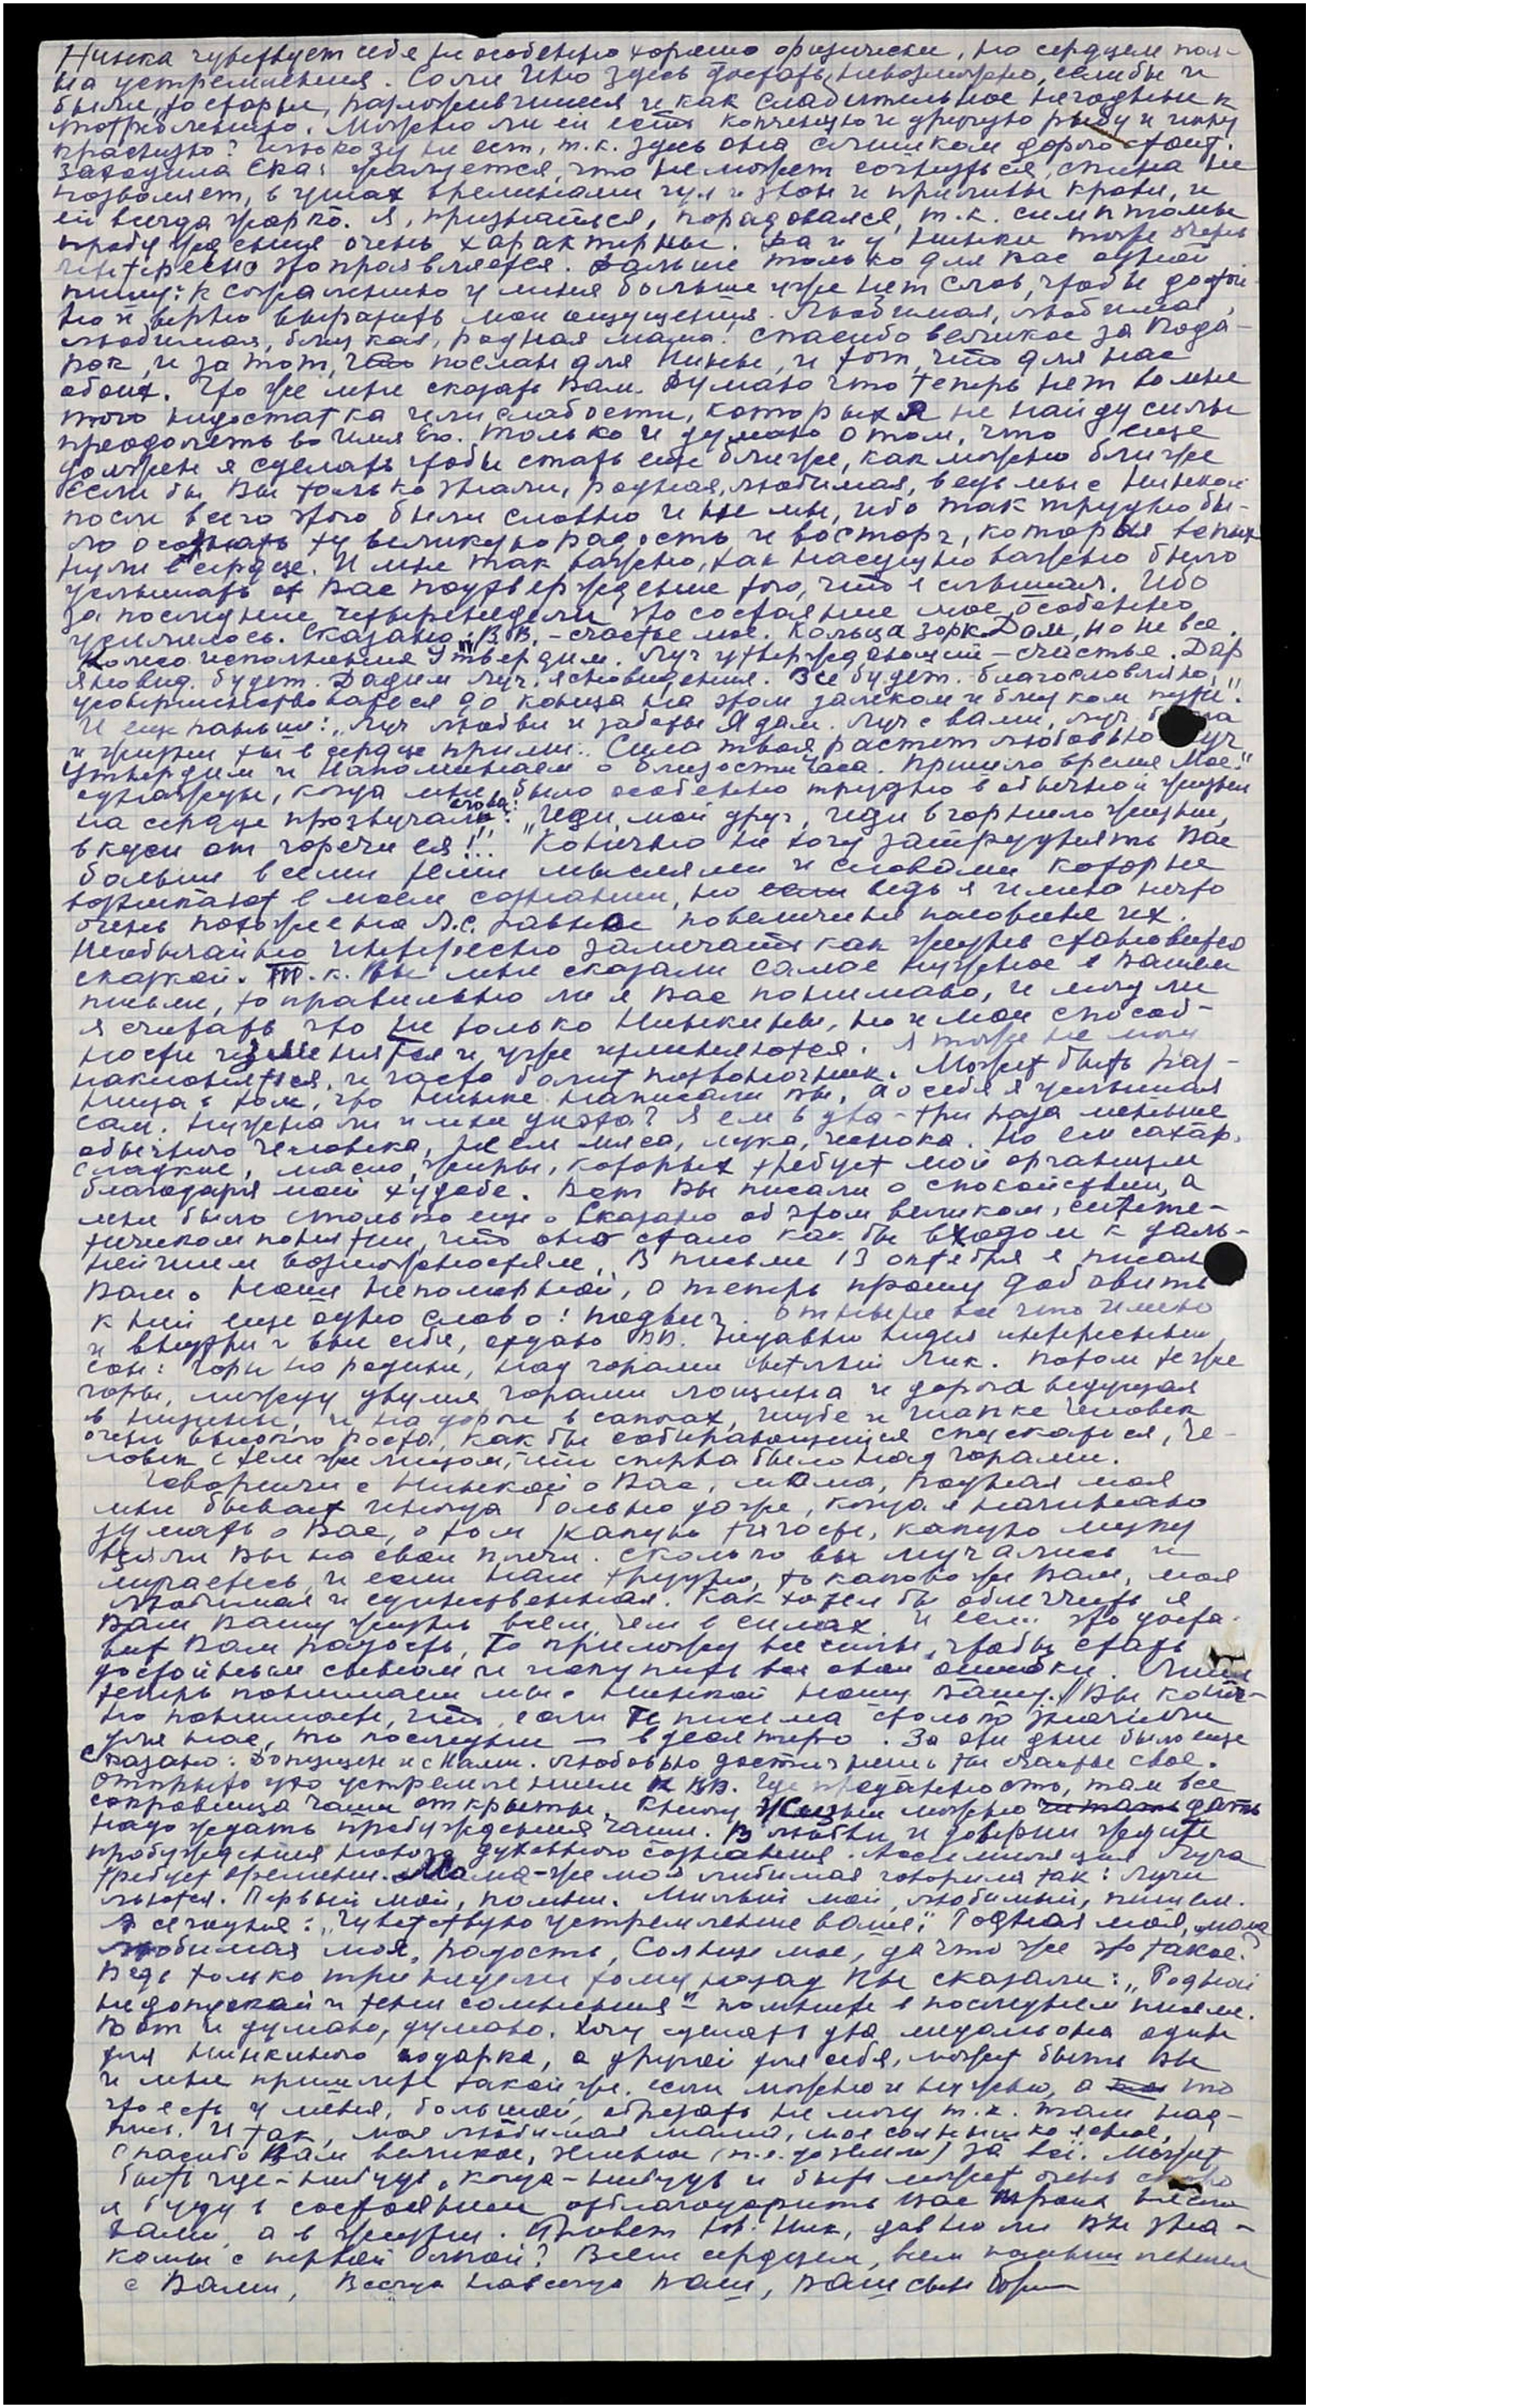 Нинка чувствует себя не особенно хорошо физически, но сердцем пол-
на устремления. Соли Ино здесь достать невозможно, если бы и
были, то старые, разложившиеся и как слабительное негодные к
потреблению. Можно ли ей есть копченую и другую рыбу и икру
красную? заходила Ека: жалуется, что не может согнуться, спина не
позволяет, в ушах временами гул и звон и приливы крови, и
ей всегда жарко. Я, признаться, порадовался, т.к. симптомы
пробуждения очень характерны. Да и у Нинки тоже очень
интересно это проявляется. Дальше только для Вас одной
пишу: к сожалению у меня больше уже нет слов, чтобы достой-
но и верно выразить мои ощущения. Любимая, любимая,
любимая, близкая, родная мама! Спасибо великое за пода-
рок, и за тот, что послан для Нины, и тот, что для нас
обоих. Что же мне сказать Вам. Думаю что теперь нет во мне
того недостатка или слабости, которых я не найду силы
преодолеть во имя Его. Только и думаю о том, что еще
должен я сделать чтобы стать еще ближе, как можно ближе
Если бы Вы только знали, родная, любимая, ведь мы с Нинкой
после всего этого были словно и не мы, ибо так трудно бы-
ло осознать ту великую радость и восторг, которая вспых
нули в сердце. И мне так важно, так насущно важно было
услышать от Вас подтверждение того, что я слышал. Ибо
за последние четыре недели это состояние мое особенно
усилилось. Сказано: "В.В. – счастье мое. Кольца зорк. Дам, но не все.
Колесо исполнения утвердим. Луч утверждающий – счастье. Дар
ясновид. будет. Дадим луч ясновидения. Все будет. Благословляю,
усовершенствоваться до конца на этом далеком и близком пути".
И еще раньше: "Луч любви и заботы Я дам. Луч с вами, луч
и жизни ты в сердце прими. Сила твоя растет любовью
Утвердим и напоминаем о близости Часа. Пришло время Мое."
однажды, когда мне было особенно трудно в обычной жизни
на сердце прозвучали слова: "Иди, мой друг, иди в горнило жизни,
вкуси от горечи ея!!.." Конечно не хочу затруднять Вас
больше всеми теми мыслями и словами которые
возникают в моем сознании, но ведь я имею нечто
очень похожее на
Необычайно интересно замечать как жизнь становится
сказкой. Т.к. Вы мне сказали самое нужное в Вашем
письме, то правильно ли я Вас понимаю, и могу ли
я считать что не только Нинкины, но и мои способ-
ности изменятся и уже изменяются. Я тоже не могу
наклоняться, и часто болит позвоночник. Может быть раз-
ница в том, что Нинке написали Вы, а о себе я услышал
сам. Нужна ли и мне диэта? Я ем в два-три раза меньше
обычного человека, не ем мяса, лука, чеснока. Но ем сахар,
сладкое, масло, жиры, которых требует мой организм
благодаря моей худобе. Вот Вы писали о спокойствии, а
мне было столько еще Сказано об этом великом, синте-
тическом понятии, что оно стало как бы входом к даль-
нейшим возможностям. В письме 13 октября я писал
Вам о нашей непомерной, а теперь прошу добавить
к ней еще одно слово! подвиг. отныне все что имею
и внутри и вне себя, отдаю ВВ. Недавно видел интересный
сон: горы на родине, над горами светлый Лик. Потом те же
горы, между двумя горами лощина и дорога ведущая
в низины, и на дороге в сапогах, шубе и шапке человек
очень высокого роста, как бы собирающийся спускаться, че-
ловек с тем же лицом, что сперва было над горами.
Говорили с Нинкой о Вас, мама, родная моя
мне бывает иногда больно даже, когда я начинаю
думать о Вас, о том какую тягость, какую муку
взяли Вы на свои плечи. Сколько вы мучались и
мучаетесь, и если нам трудно, то каково же Вам, моя
любимая и единственная. Как хотел бы облегчить я
Вам Вашу жизнь всем, чем в силах. И если это доста-
вит Вам радость, то приложу все силы, чтобы стать
достойным сыном и искупить все свои ошибки. Лишь
теперь понимаем мы с Нинкой нашу Вашу. Вы конеч-
но понимаете, что если те письма столько значили
для нас, то последнее – вдесятеро. За эти дни было еще
Сказано: Допущен и с Нами. Любовью достигнешь ты счастье свое.
Открыто ухо устремлением к ВВ. Где преданность, там все
сокровища чаши открыты. Книгу Жизни можно дать
надо ждать пробуждения чаши. В любви и доверии ждите
пробуждения нового духовного сознания. Ассимиляция Луча
требует времени. Мама-же моя любимая говорила так: Лучи
льются. Первый мой, помни. Милый мой, любимый, пишем.
А сегодня: "Чувствую устремление ваше". Родная моя, мама
любимая моя, радость, Солнце мое, да что же это такое?
Ведь только три недели тому назад Вы сказали: "Родной
не допускай и тени сомнения" – помните в последнем письме.
Вот и думаю, думаю. Хочу сделать два медальона один
для Нинкиного подарка, а другой для себя, может быть Вы
и мне пришлете такой же. если можно и нужно, а то
что есть у меня, большой, обрезать не могу т.к. там над-
пись. Итак, моя любимая мама, мое солнышко ясное,
спасибо Вам великое, земное (т.е. до земли) за всё. Может
быть где-нибудь, когда-нибудь и быть может очень скоро
я буду в состоянии отблагодарить Вас
вами, а в жизни. Привет Ник, давно ли Вы зна-
комы с первой Всем сердцем, всем
с Вами, Всегда навсегда Ваш, Ваш сын Борис